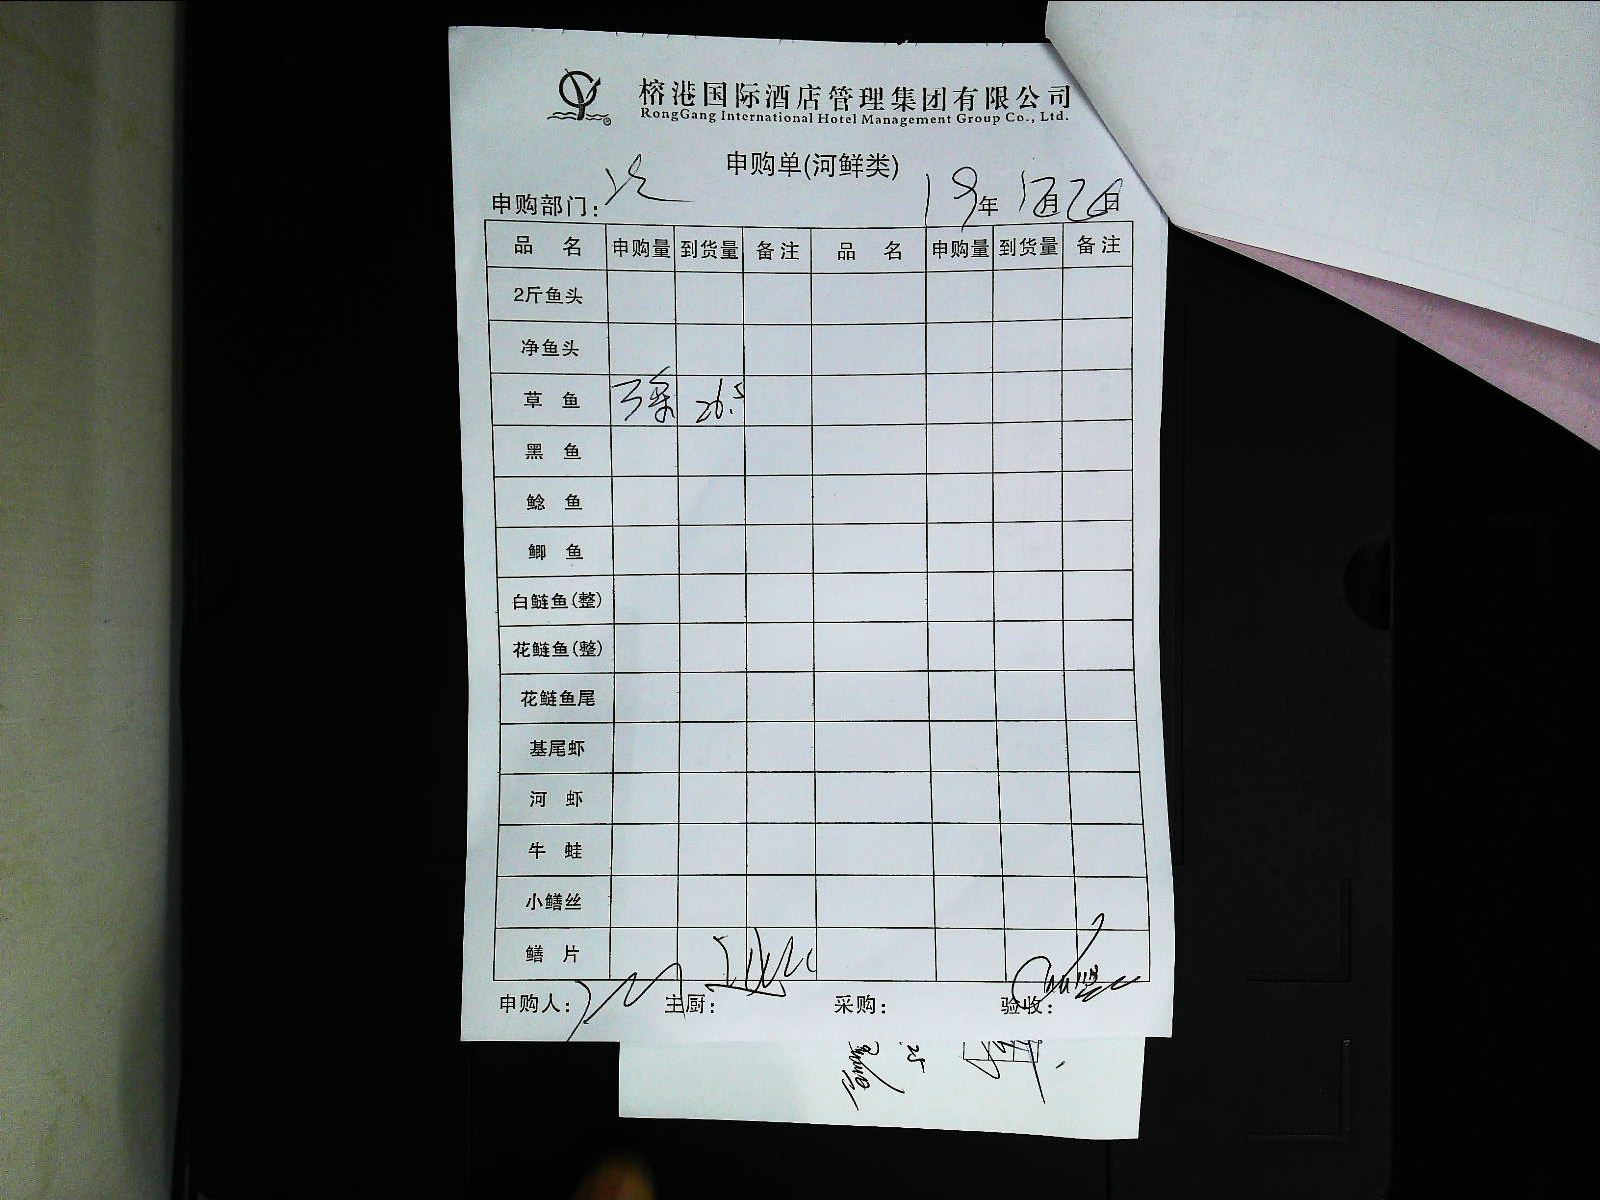 榕港国际酒店管理集团有限公司
RongGang International Hotel Management Group Co., Ltd.
申购单(河鲜类)
申购部门：
19年 月 日
品 名 申购量 到货量 备注 品 名 申购量 到货量 备注
2斤鱼头
净鱼头
草 鱼 26.5
黑 鱼
鲶 鱼
鲫 鱼
白鲢鱼(整)
花鲢鱼(整)
花鲢鱼尾
基尾虾
河 虾
牛 蛙
小鳝丝
鳝 片
申购人： 主厨： 采购： 验收：
.25